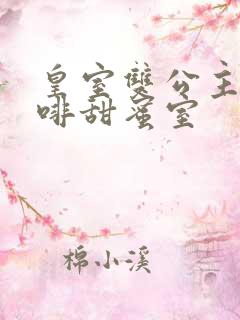 皇室雙公主
啡甜蜜室
棉小溪